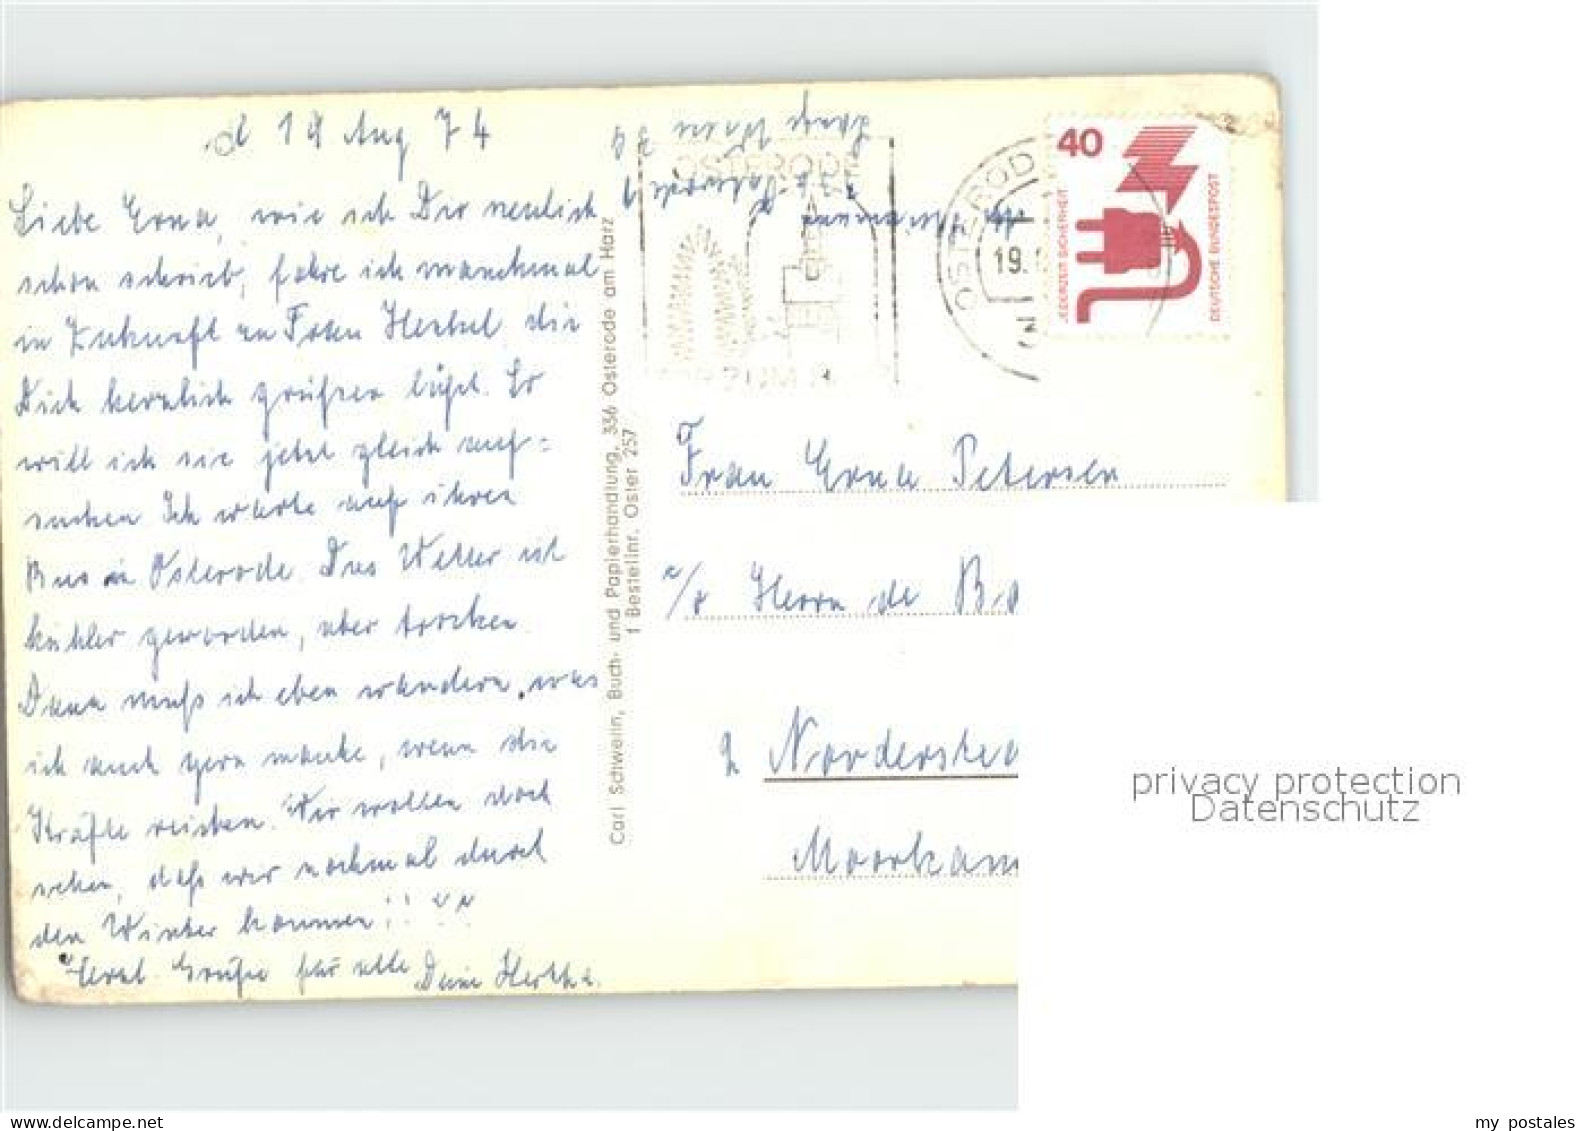 d 19 Aug 74
Liebe Erna, wie ich Dir neulich
schon schrieb, fahre ich manchmal
in Zukunft zu Frau Henkel die
Dich herzlich grüßen läßt. So
will ich sie jetzt gleich auf=
suchen Ich warte auf ihren
Bus in Osterode. Das Wetter ist
kühler geworden, aber trocken.
Dann muß ich eben wandern, was
ich auch gern mache, wenn die
Kräfte reichen. Wir wollen doch
sehen, daß wir nochmal durch
den Winter kommen!!
Herzl. Grüße für alle Deine Hertha.
Carl Schwelin, Buch- und Papierhandlung, 336 Osterode am Harz
1 Bestellnr. Oster 257
OSTERODE
ZUM
OSTEROD
19.
40
JEDERZEIT SICHERHEIT
DEUTSCHE BUNDESPOST
Frau Erna Petersen
c/o Herrn de
2 Norderste
Moorkam
privacy protection
Datenschutz
my postales